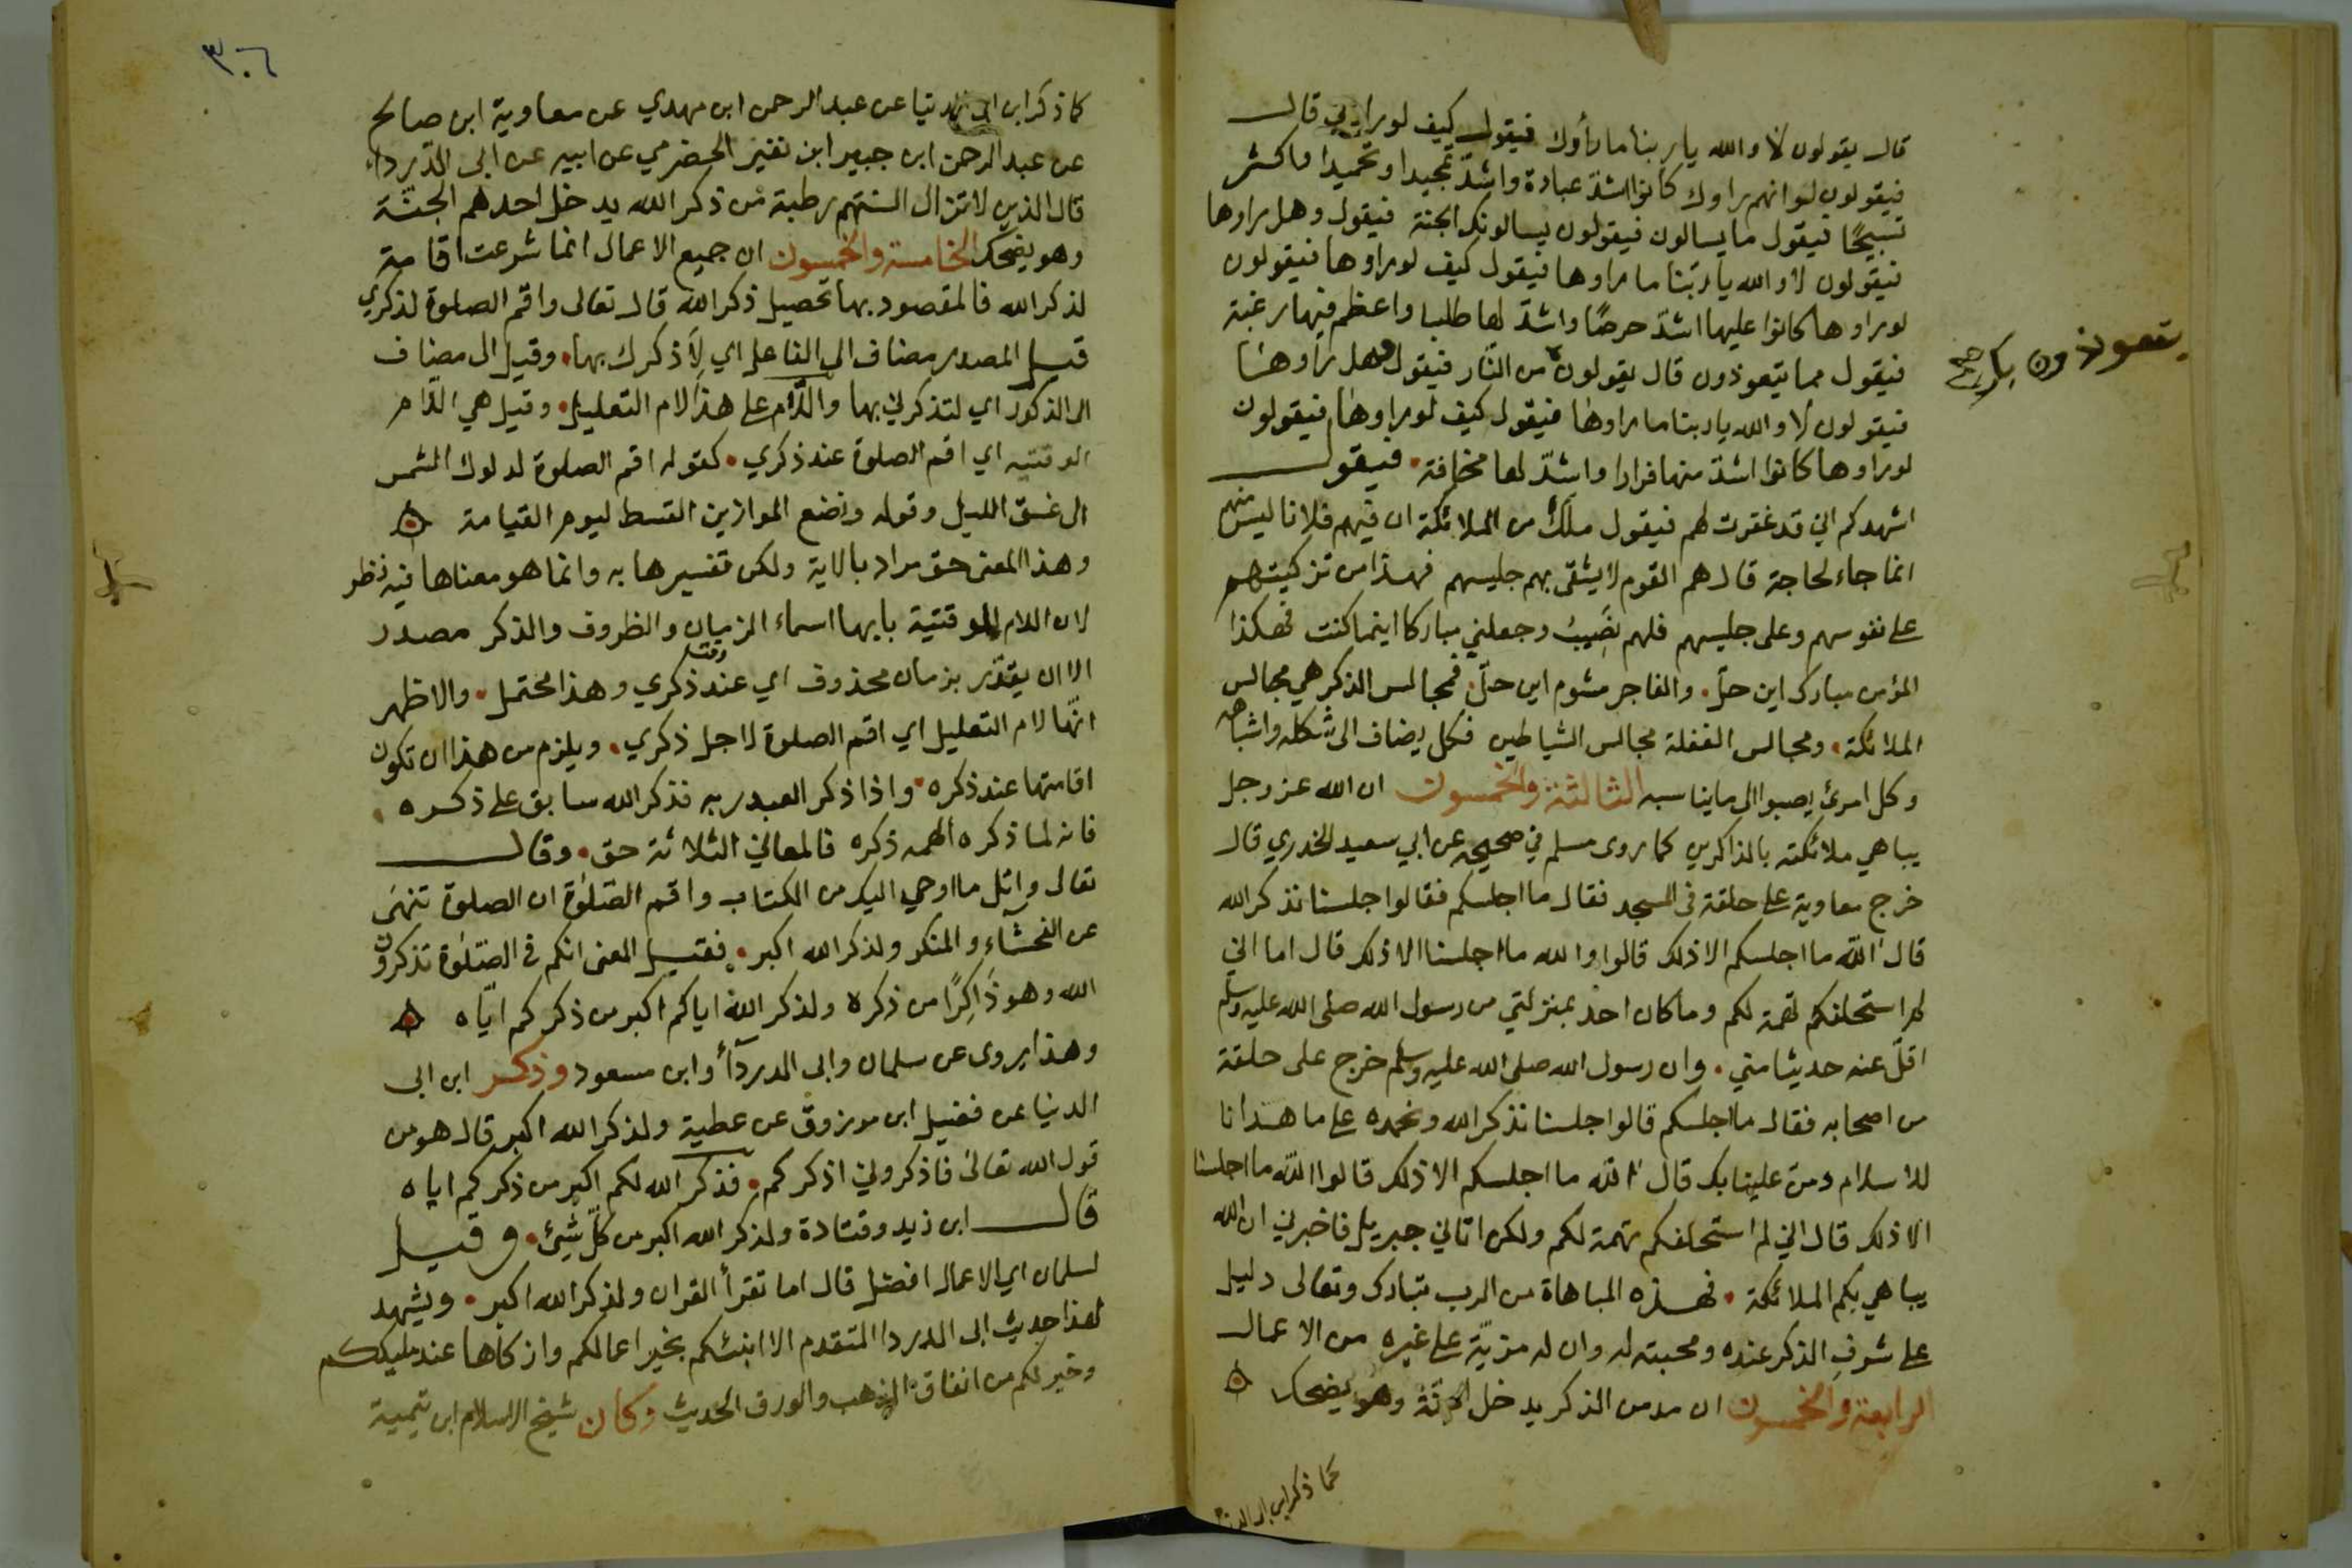 قال يقولون لا والله يا ربنا ما رأوك فيقول كيف لو رأوني قال
فيقولون لو انهم راوك كانوا اشدّ عبادة واشدّ تمجيدا وتحميدا واكثر
تسبيحًا فيقول ما يسالون فيقولون يسالونك الجنة فيقول وهل راوها
فيقولون لا والله يا ربّنا ما راوها فيقول كيف لو راوها فيقولون
لو راوها كانوا عليها اشدّ حرصًا واشدّ لها طلبا واعظم فيها رغبة
فيقول مما يتعوذون قال يقولون من النّار فيقول وهل رأوها
يتعوذون بك صح
فيقولون لا والله يا ربنا ما راوها فيقول كيف لو راوها فيقولون
لو راوها كانوا اشدّ منها فرارا واشدّ لها مخافة . فيقول
اشهدكم اني قد غفرت لهم فيقول ملك من الملائكة ان فيهم فلانا ليس منهم
انما جاء لحاجة قال هم القوم لا يشقى بهم جليسهم فهذا من تزكيتهم
على نفوسهم وعلى جليسهم فلهم نصيب وجعلني مباركا اينما كنت فهكذا
المؤمن مبارك اين حلّ . والفاجر مشوم اين حلّ . فمجالس الذكر هي مجالس
الملائكة . ومجالس الغفلة مجالس الشياطين فكل يضاف الى شكله واشباهه
وكل امرئ يصبوا الى ما يناسبه الثالثة والخمسون ان الله عز وجل
يباهي ملائكته بالذاكرين كما روى مسلم في صحيحه عن ابي سعيد الخدري قال
خرج معاوية على حلقة في المسجد فقال ما اجلسكم فقالوا جلسنا نذكر الله
قال آلله ما اجلسكم الا ذلك قالوا والله ما اجلسنا الا ذلك قال اما اني
لم استحلفكم تهمة لكم وما كان احد بمنزلتي من رسول الله صلى الله عليه وسلم
اقلّ عنه حديثا مني . وان رسول الله صلى الله عليه وسلم خرج على حلقة
من اصحابه فقال ما اجلسكم قالوا جلسنا نذكر الله ونحمده على ما هدانا
للاسلام ومن علينا بك قال آلله ما اجلسكم الا ذلك قالوا الله ما اجلسنا
الا ذلك قال اني لم استحلفكم تهمة لكم ولكن اتاني جبريل فاخبرني ان الله
يباهي بكم الملائكة . فهذه المباهاة من الرب تبارك وتعالى دليل
على شرف الذكر عنده ومحبته له وان له مزيّة على غيره من الاعمال
الرابعة والخمسون ان مدمن الذكر يدخل الجنة وهو يضحك
كما ذكر ابن ابي الدنيا
٣٠٦
كما ذكر ابن ابي الدنيا عن عبد الرحمن ابن مهدي عن معاوية ابن صالح
عن عبد الرحمن ابن جبير ابن نفير الحضرمي عن ابيه عن ابي الدّرداء
قال الذين لا تزال السنتهم رطبة من ذكر الله يدخل احدهم الجنّة
وهو يضحك الخامسة والخمسون ان جميع الاعمال انما شرعت اقامة
لذكر الله فالمقصود بها تحصيل ذكر الله قال تعالى واقم الصلوة لذكري
قيل المصدر مضاف الى الفاعل اي لِأَذكرك بها . وقيل ال مضاف
الى الذكور اي لتذكرني بها واللّام على هذا لام التعليل . وقيل هي اللام
الوقتيه اي اقم الصلوة عند ذكري . كقوله اقم الصلوة لدلوك الشمس
الى غسق الليل وقوله ونضع الموازين القسط ليوم القيامة
وهذا المعنى حق مراد بالاية ولكن تفسيرها به وانما هو معناها فيه نظر
لان اللام الوقتية بابها اسماء الزمان والظروف والذكر مصدر
الا ان يقدّر بزمان محذوف اي عند وقت ذكري وهذا محتمل . والاظهر
انّها لام التعليل اي اقم الصلوة لاجل ذكري . ويلزم من هذا ان تكون
اقامتها عند ذكره . واذا ذكر العبد ربه فذكر الله سابق على ذكره .
فانه لما ذكره الهمه ذكره فالمعاني الثلاثة حق . وقال
تعالى واتل ما اوحي اليك من الكتاب واقم الصّلوة ان الصلوة تنهى
عن الفحشاء والمنكر ولذكر الله اكبر . فقيل المعنى انكم في الصّلوة تذكرون
الله وهو ذَاكِرًا من ذكره ولذكر الله اياكم اكبر من ذكركم ايّاه
وهذا يروى عن سلمان وابي الدرداء وابن مسعود وذكر ابن ابي
الدنيا عن فضيل ابن مرزوق عن عطية ولذكر الله اكبر قال هو من
قول الله تعالى فاذكروني اذكركم . فذكر الله لكم اكبر من ذكركم اياه
قال ابن زيد وقتادة ولذكر الله اكبر من كلّ شيئ . وقيل
لسلمان اي الاعمال افضل قال اما تقرأ القران ولذكر الله اكبر . ويشهد
لهذا حديث ابي الدردا المتقدم الا انبئكم بخير اعمالكم وازكاها عند مليككم
وخير لكم من انفاق الذهب والورق الحديث وكان شيخ الاسلام ابن تيمية